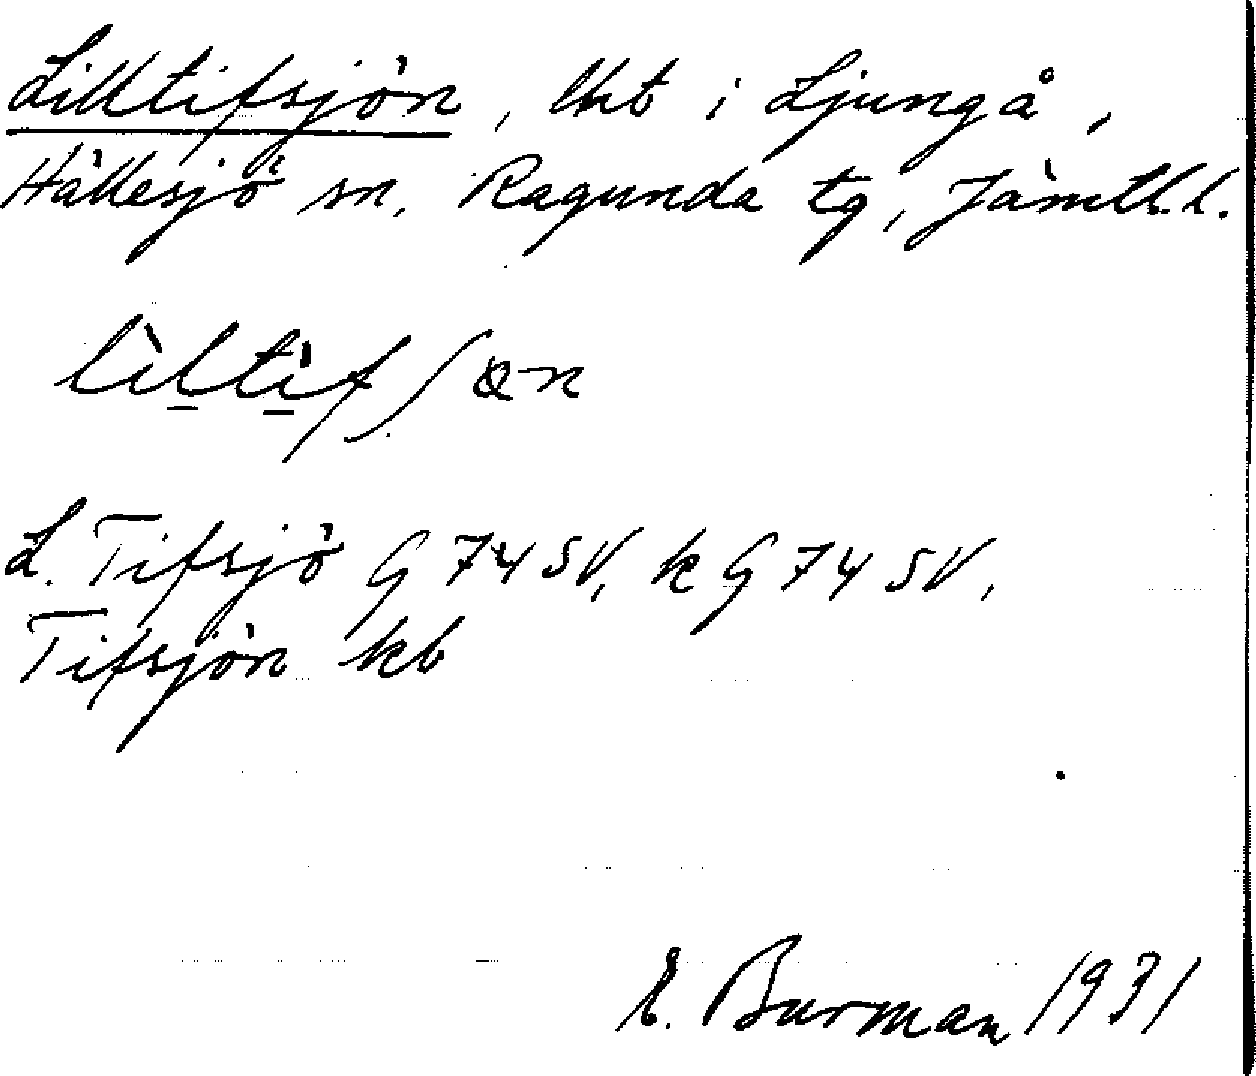 Lilltifsjön, lht i Ljungå,
Hällesjö sn, Ragunda tg, Jämtl. l.
lìltìfʃøn
L. Tifsjö G 74 SV, k G 74 SV,
Tifsjön kb
E. Burman 1931